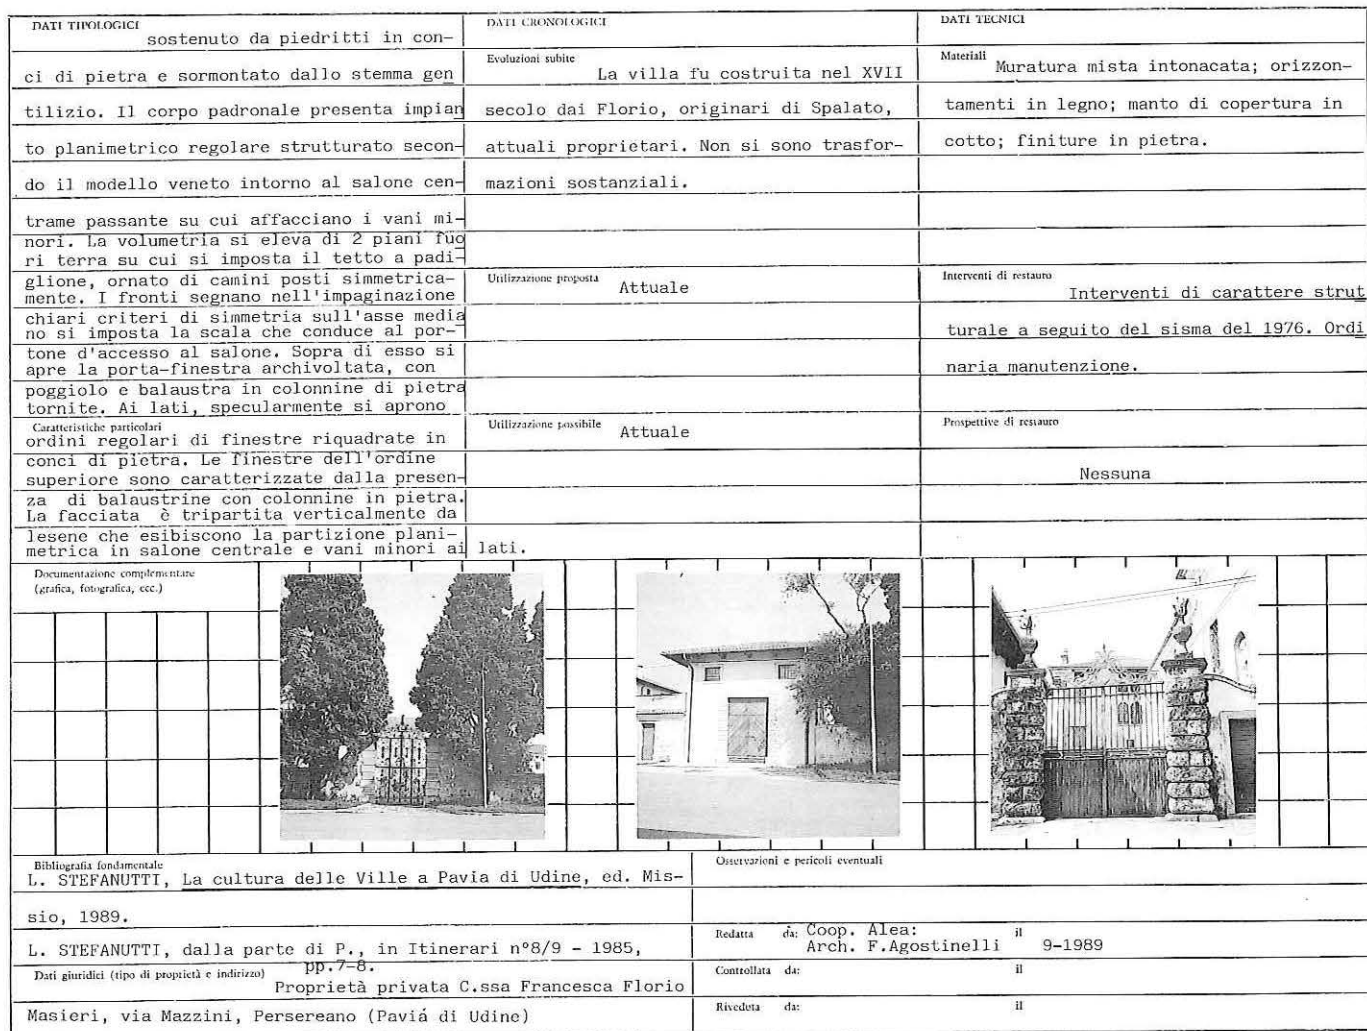 DATI TIPOLOGICI
sostenuto da piedritti in con-
ci di pietra e sormontato dallo stemma gen
tilizio. Il corpo padronale presenta impian
to planimetrico regolare strutturato secon-
do il modello veneto intorno al salone cen-
trame passante su cui affacciano i vani mi-
nori. La volumetria si eleva di 2 piani fuo
ri terra su cui si imposta il tetto a padi-
glione, ornato di camini posti simmetrica-
mente. I fronti segnano nell'impaginazione
chiari criteri di simmetria sull'asse media
no si imposta la scala che conduce al por-
tone d'accesso al salone. Sopra di esso si
apre la porta-finestra archivoltata, con
poggiolo e balaustra in colonnine di pietra
tornite. Ai lati, specularmente si aprono
Caratteristiche particolari
ordini regolari di finestre riquadrate in
conci di pietra. Le finestre dell'ordine
superiore sono caratterizzate dalla presen-
za di balaustrine con colonnine in pietra.
La facciata è tripartita verticalmente da
lesene che esibiscono la partizione plani-
metrica in salone centrale e vani minori ai lati.
DATI CRONOLOGICI
Evoluzioni subite
La villa fu costruita nel XVII
secolo dai Florio, originari di Spalato,
attuali proprietari. Non si sono trasfor-
mazioni sostanziali.
Utilizzazione proposta Attuale
Utilizzazione possibile Attuale
DATI TECNICI
Materiali
Muratura mista intonacata; orizzon-
tamenti in legno; manto di copertura in
cotto; finiture in pietra.
Interventi di restauro
Interventi di carattere strut
turale a seguito del sisma del 1976. Ordi
naria manutenzione.
Prospettive di restauro
Nessuna
Documentazione complementare
(grafica, fotografica, ecc.)
Bibliografia fondamentale
L. STEFANUTTI, La cultura delle Ville a Pavia di Udine, ed. Mis-
sio, 1989.
L. STEFANUTTI, dalla parte di P., in Itinerari n°8/9 - 1985,
pp.7-8.
Dati giuridici (tipo di proprietà e indirizzo)
Proprietà privata C.ssa Francesca Florio
Masieri, via Mazzini, Persereano (Paviá di Udine)
Osservazioni e pericoli eventuali
Redatta da: Coop. Alea: il
Arch. F.Agostinelli 9-1989
Controllata da: il
Riveduta da: il